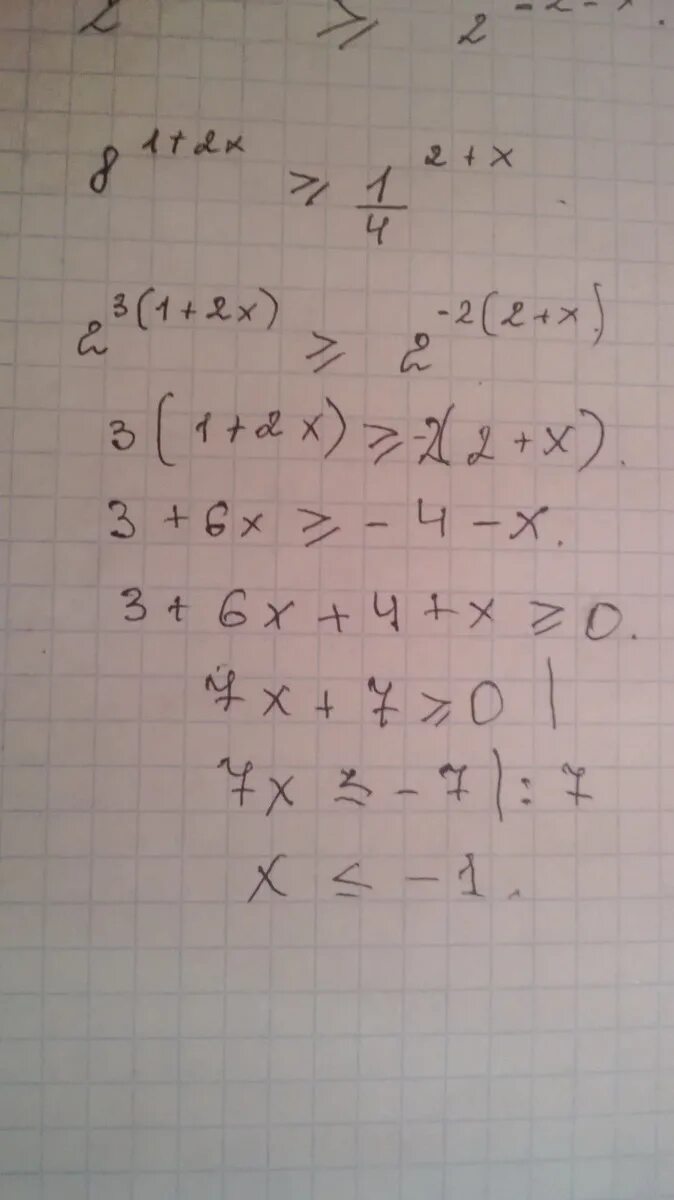 2 ≥ 2^-2-x.
8^1+2x ≥ 1/4^2+x
2^3(1+2x) ≥ 2^-2(2+x)
3(1+2x) ≥ -2(2+x).
3+6x ≥ -4-x.
3+6x+4+x ≥ 0.
7x+7 ≥ 0 |
7x ≥ -7 | : 7
x ≤ -1.